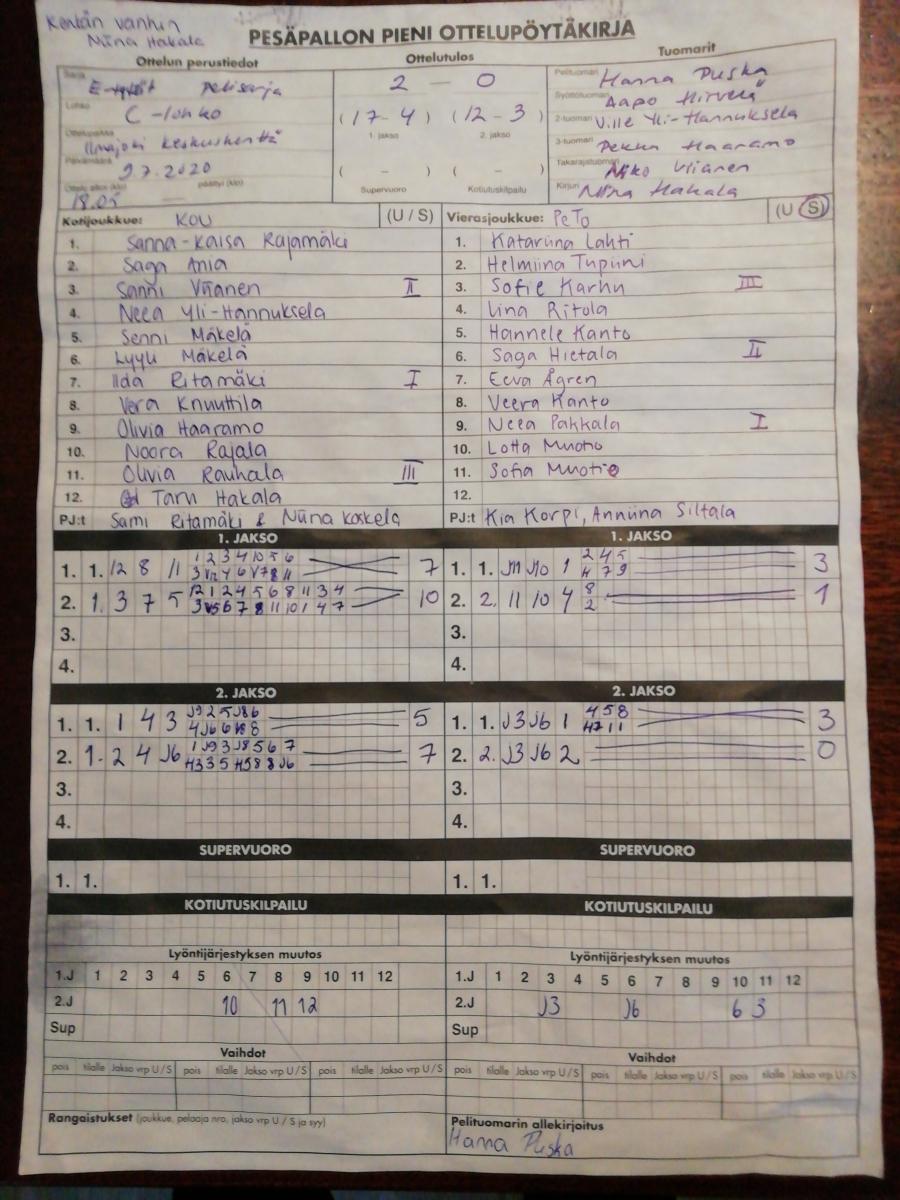 Kentän vanhin
Niina Hakala
PESÄPALLON PIENI OTTELUPÖYTÄKIRJA
Ottelun perustiedot
Ottelutulos
Tuomarit
Sarja E-tytöt pelisarja
Lohko C-lohko
Ottelupaikka Ilmajoki keskuskenttä
Päivämäärä 9.7.2020
Ottelu alkoi (klo) 18.05 päättyi (klo) —
2 – 0
(17 – 4) (12 – 3)
1. jakso 2. jakso
( – ) ( – )
Supervuoro Kotiutuskilpailu
Pelituomari Hanna Puska
Syöttötuomari Aapo Hirvelä
2-tuomari Ville Yli-Hannuksela
3-tuomari Pekka Haaramo
Takarajatuomari Niko Viianen
Kirjuri Niina Hakala
Kotijoukkue: KOU (U / S)
1. Sanna-Kaisa Rajamäki
2. Saga Ania
3. Sanni Viianen II
4. Neea Yli-Hannuksela
5. Senni Mäkelä
6. Lyyli Mäkelä
7. Iida Ritamäki I
8. Vera Knuuttila
9. Olivia Haaramo
10. Noora Rajala
11. Olivia Rauhala III
12. Taru Hakala
PJ:t Sami Ritamäki & Niina Koskela
Vierasjoukkue: PeTo (U / S)
1. Katariina Lahti
2. Helmiina Tupiini
3. Sofie Karhu III
4. Iina Ritola
5. Hannele Kanto
6. Saga Hietala II
7. Eeva Ågren
8. Veera Kanto
9. Neea Pakkala I
10. Lotta Muotio
11. Sofia Muotio
12.
PJ:t Kia Korpi, Anniina Siltala
1. JAKSO
1. 1. 12 8 11 1 2 3 4 10 5 6 7
2. 1. 3 7 5 12 1 2 4 5 6 8 11 3 4 10
3.
4.
1. JAKSO
1. 1. J11 J10 1 2 4 5 3
4 7 9
2. 2. 11 10 4 8 1
2
3.
4.
2. JAKSO
1. 1. 1 4 3 J9 2 5 J8 6 5
2. 1. 2 4 J6 1 J9 3 J8 5 6 7 7
3.
4.
2. JAKSO
1. 1. J3 J6 1 4 5 8 3
2. 2. J3 J6 2 0
3.
4.
SUPERVUORO
1. 1.
SUPERVUORO
1. 1.
KOTIUTUSKILPAILU
KOTIUTUSKILPAILU
Lyöntijärjestyksen muutos
1.J 1 2 3 4 5 6 7 8 9 10 11 12
2.J 10 11 12
Sup
Lyöntijärjestyksen muutos
1.J 1 2 3 4 5 6 7 8 9 10 11 12
2.J J3 J6 6 3
Sup
Vaihdot
pois tilalle Jakso vrp U / S pois tilalle Jakso vrp U / S pois tilalle Jakso vrp U / S
Vaihdot
pois tilalle Jakso vrp U / S pois tilalle Jakso vrp U / S pois tilalle Jakso vrp U / S
Rangaistukset (joukkue, pelaaja nro, jakso vrp U / S ja syy)
Pelituomarin allekirjoitus
Hanna Puska